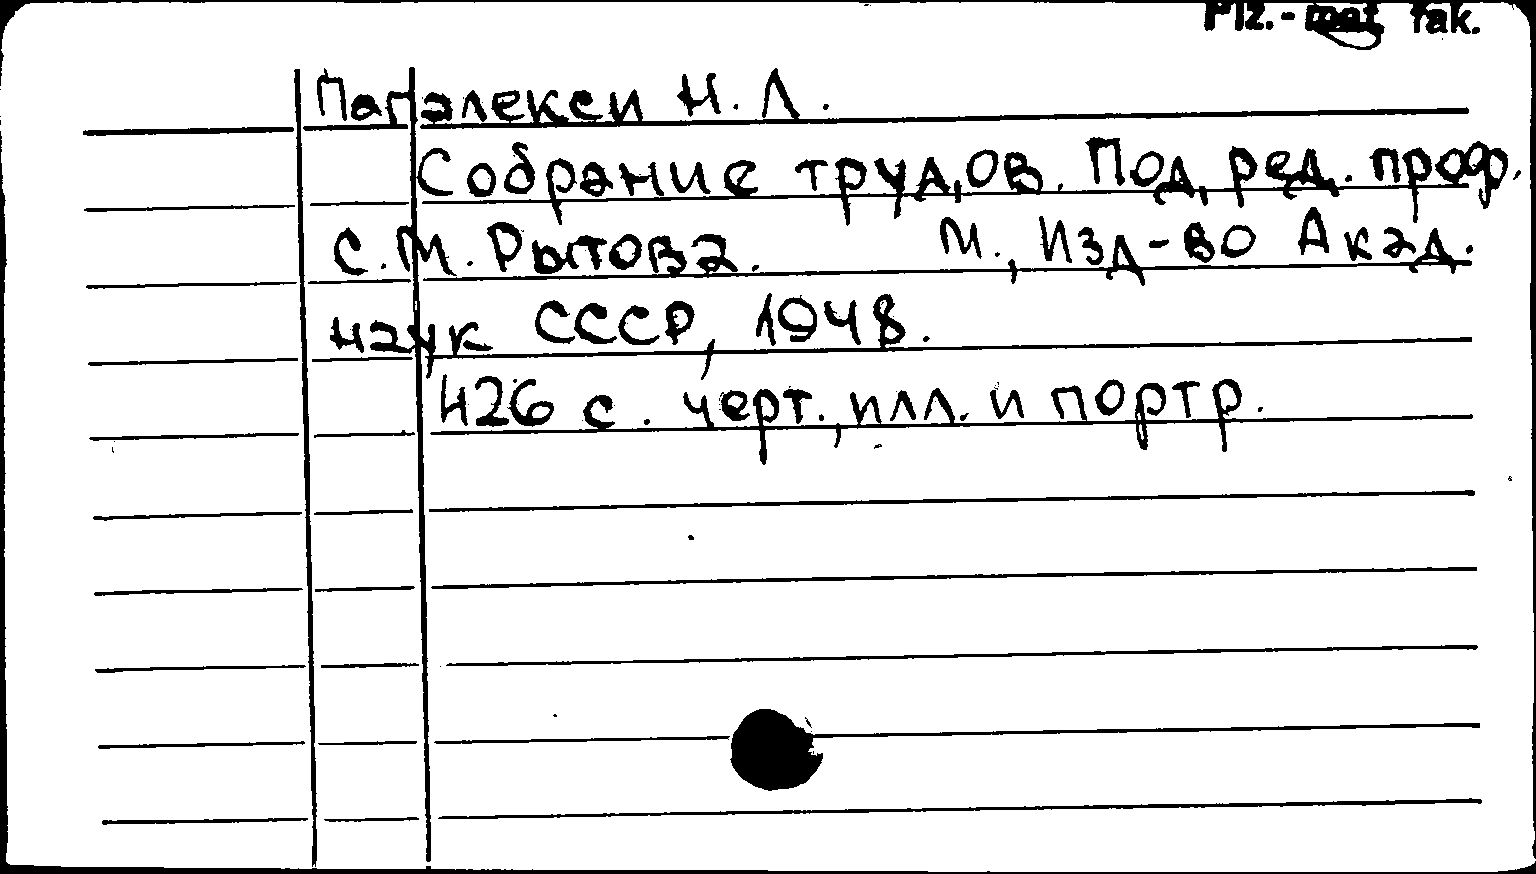 Fiz.-mat. fak.
Папалекси Н. Л.
Собрание трудов. Под ред. проф.
С. М. Рытова. М., Изд-во Акад.
наук СССР, 1948.
426 с. черт., илл. и портр.